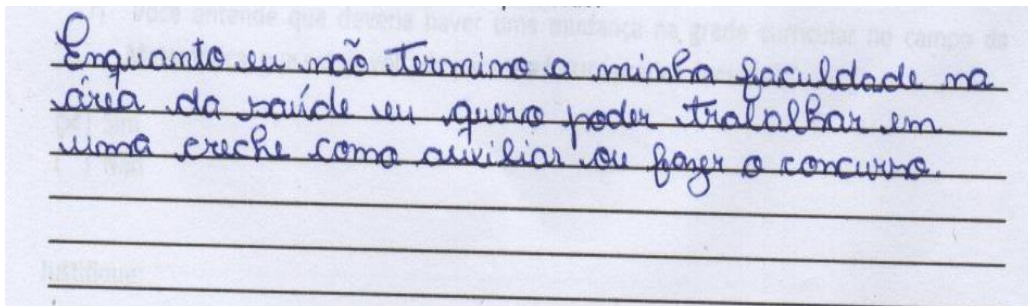 Enquanto eu não termino a minha faculdade na
área da saúde eu quero poder trabalhar em
uma creche como auxiliar ou fazer o concurso.